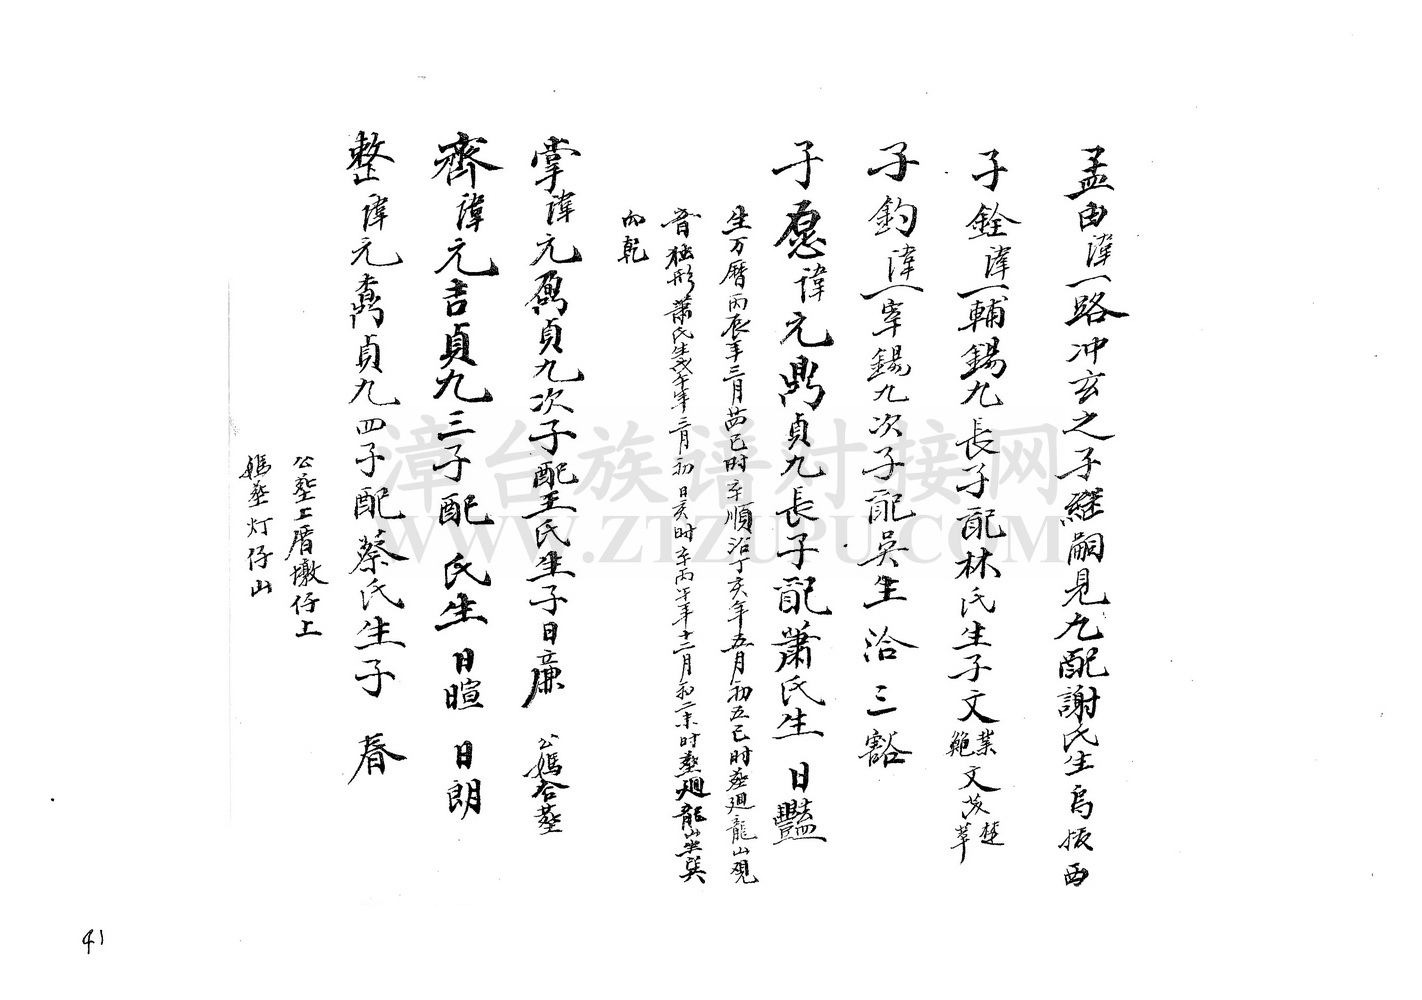 孟由諱一路冲玄之子継嗣見九配謝氏生烏振西
子銓諱一輔錫九長子配林氏生子文業 文茂 楚 萃
子鈞諱一宰錫九次子配吳生 洽 三 豁
子愿諱元鼎貞九長子配蕭氏生 日豔
生万曆丙辰年三月 巳时卒順治丁亥年五月初五巳时塟廻龍山覌
音独形蕭氏生戊午年三月初 日亥时卒丙午年十二月初二未时塟廻龍山坐巽
向乾
掌諱元鼐貞九次子配王氏生子日廉 公媽合塟
齊諱元吉貞九三子配 氏生 日暄 日朗
整諱元鼒貞九四子配蔡氏生子 春
公塟上厝墩仔上
媽塟灯仔山
漳台族谱对接网
WWW.ZTZUPU.COM
41